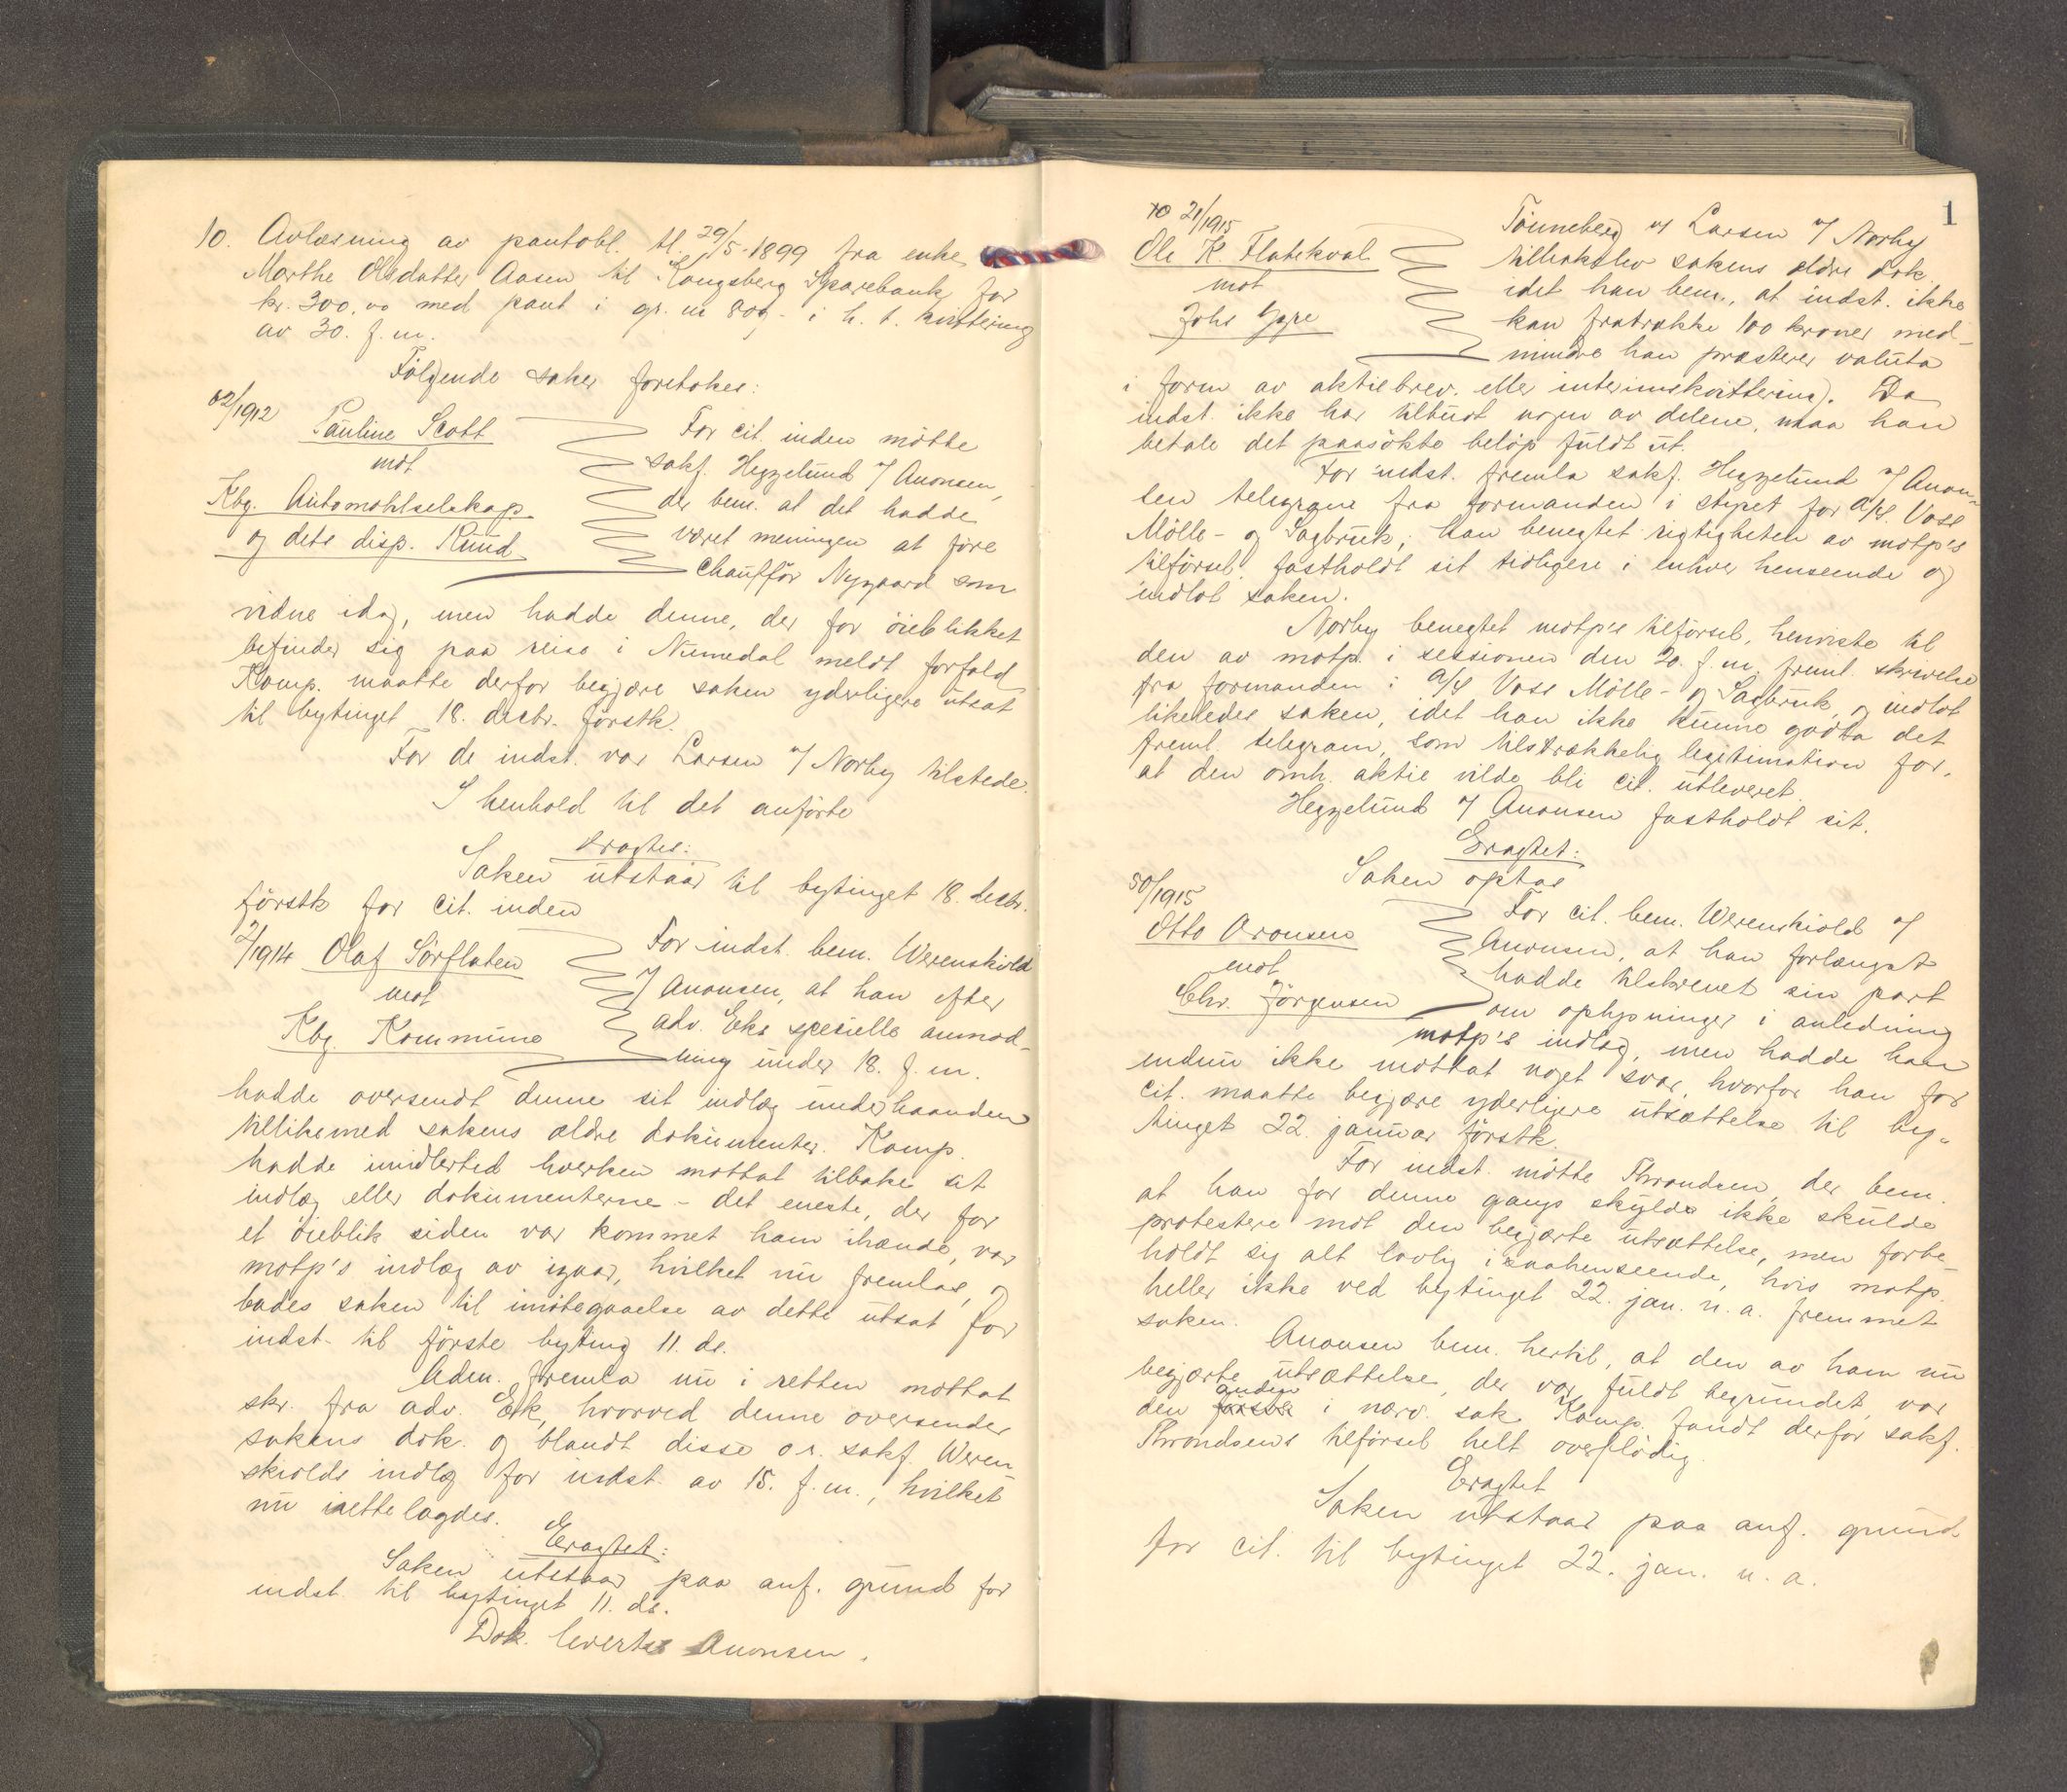 10. Avlæsning av pantobl. tl. 29/5-1899 fra enke
Marthe Olsdatter Aasen til Kongsberg Sparebank for
kr. 300,00 med pant i gr. nr 809 - i h. t. kvittering
av 30. f. m.
Følgende saker foretokes:
82/1912 Pauline Scott
mot
Kbg. Automobilselskap
og dets disp. Ruud
For cit. inden mötte
sakf. Heggelund v/ Anonsen,
der bem. at det hadde
været meningen at före
Chaufför Nygaard som
vidne idag, men hadde denne, der for öieblikket
befinder sig paa reise i Numedal meldt forfald
Komp. maatte derfor begjære saken yderligere utsat
til bytinget 18. decbr. förstk.
For de indst. var Larsen v/ Norby tilstede.
I henhold til det anförte
eragtes:
Saken utstaar til bytinget 18. decbr.
förstk for cit. inden
2/1914 Olaf Sörflaten
mot
Kbg. Kommune
For indst. bem. Werenskiold
v/ Anonsen, at han efter
adv. Eks specielle anmod-
ning under 18. f. m.
hadde oversendt denne sit indlæg underhaanden
tillikemed sakens ældre dokumenter. Komp.
hadde imidlertid hverken mottat tilbake sit
indlæg eller dokumenterne - det eneste, der for
et öieblik siden var kommet ham ihænde, var
motp's indlæg av igaar, hvilket nu fremlaes, og
bades saken til imötegaaelse av dette utsat for
indst. til förste byting 11. ds.
Adm. fremla nu i retten mottat
skr. fra adv. Ek, hvorved denne oversender
sakens dok. og blandt disse o.r. sakf. Weren
skiolds indlæg for indst. av 15. f. m., hvilket
nu irettelagdes.
Eragtet:
Saken utstaar paa anf. grund for
indst. til bytinget 11. ds.
Dok. levertes Anonsen.
1
21/1915
Ole K. Flatekval
mot
Johs Ygre
Tönneberg v/ Larsen v/ Norby
tilbakelev sakens ældre dok.
idet han bem., at indst. ikke
kan fratrække 100 kroner med-
mindre han præsterer valuta
i form av aktiebrev. eller interimskvittering. Da
indst. ikke har tilbudt nogen av delene, maa han
betale det paasökte belöp fuldt ut.
For indst. fremla sakf. Heggelund v/ Anon-
sen telegram fra formanden i styret for A/S. Voss
Mölle- og Sagbruk; han benegtet rigtigheten av motp's
tilförsel, fastholdt sit tidligere i enhver henseende og
indlot saken.
Norby benegtet motp's tilförsel, henviste til
den av motp. i sessionen den 20. f. m. freml. skrivelse
fra formanden i A/S Voss Mölle- og Sagbruk, og indlot
likeledes saken, idet han ikke kunne godta det
freml. telegram, som tilstrækkelig legitimation for,
at den omh. aktie vilde bli cit. utleveret.
Heggelund v/ Anonsen fastholdt sit.
Eragtet:
Saken optas
50/1915
Otto Aronsen
mot
Chr. Jörgensen
For cit. bem. Werenskiold v/
Anonsen, at han forlængst
hadde tilskrevet sin part
om oplysninger i anledning
motp's indlæg, men hadde han
endnu ikke mottat noget svar, hvorfor han for
cit. maatte begjære yderligere utsættelse til by-
tinget 22. januar förstk.
For indst. mötte Throndsen, der bem.
at han for denne gangs skylds ikke skulde
protestere mot den begjærte utsættelse, men forbe-
holdt sig alt lovlig i saahenseende, hvis motp.
heller ikke ved bytinget 22. jan. n. a. fremmet
saken.
Anonsen bem. hertil, at den av ham nu
begjærte utsættelse, der var fuldt begrundet, var
anden
den förste i nærv. sak. Komp. fandt derfor sakf.
Throndsens tilförsel helt overflödig.
Eragtet
Saken utstaar paa anf. grund
for cit. til bytinget 22. jan. n. a.